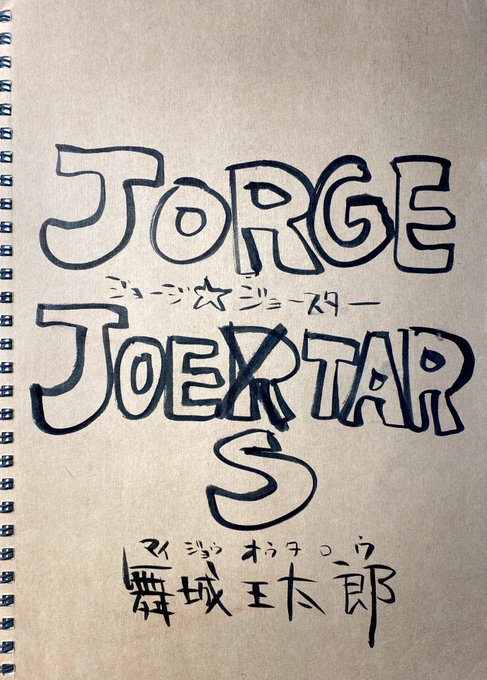 JORGE
ジョージ☆ジョースター
JOERTAR
S
マイジョウオウタロウ
舞城王太郎